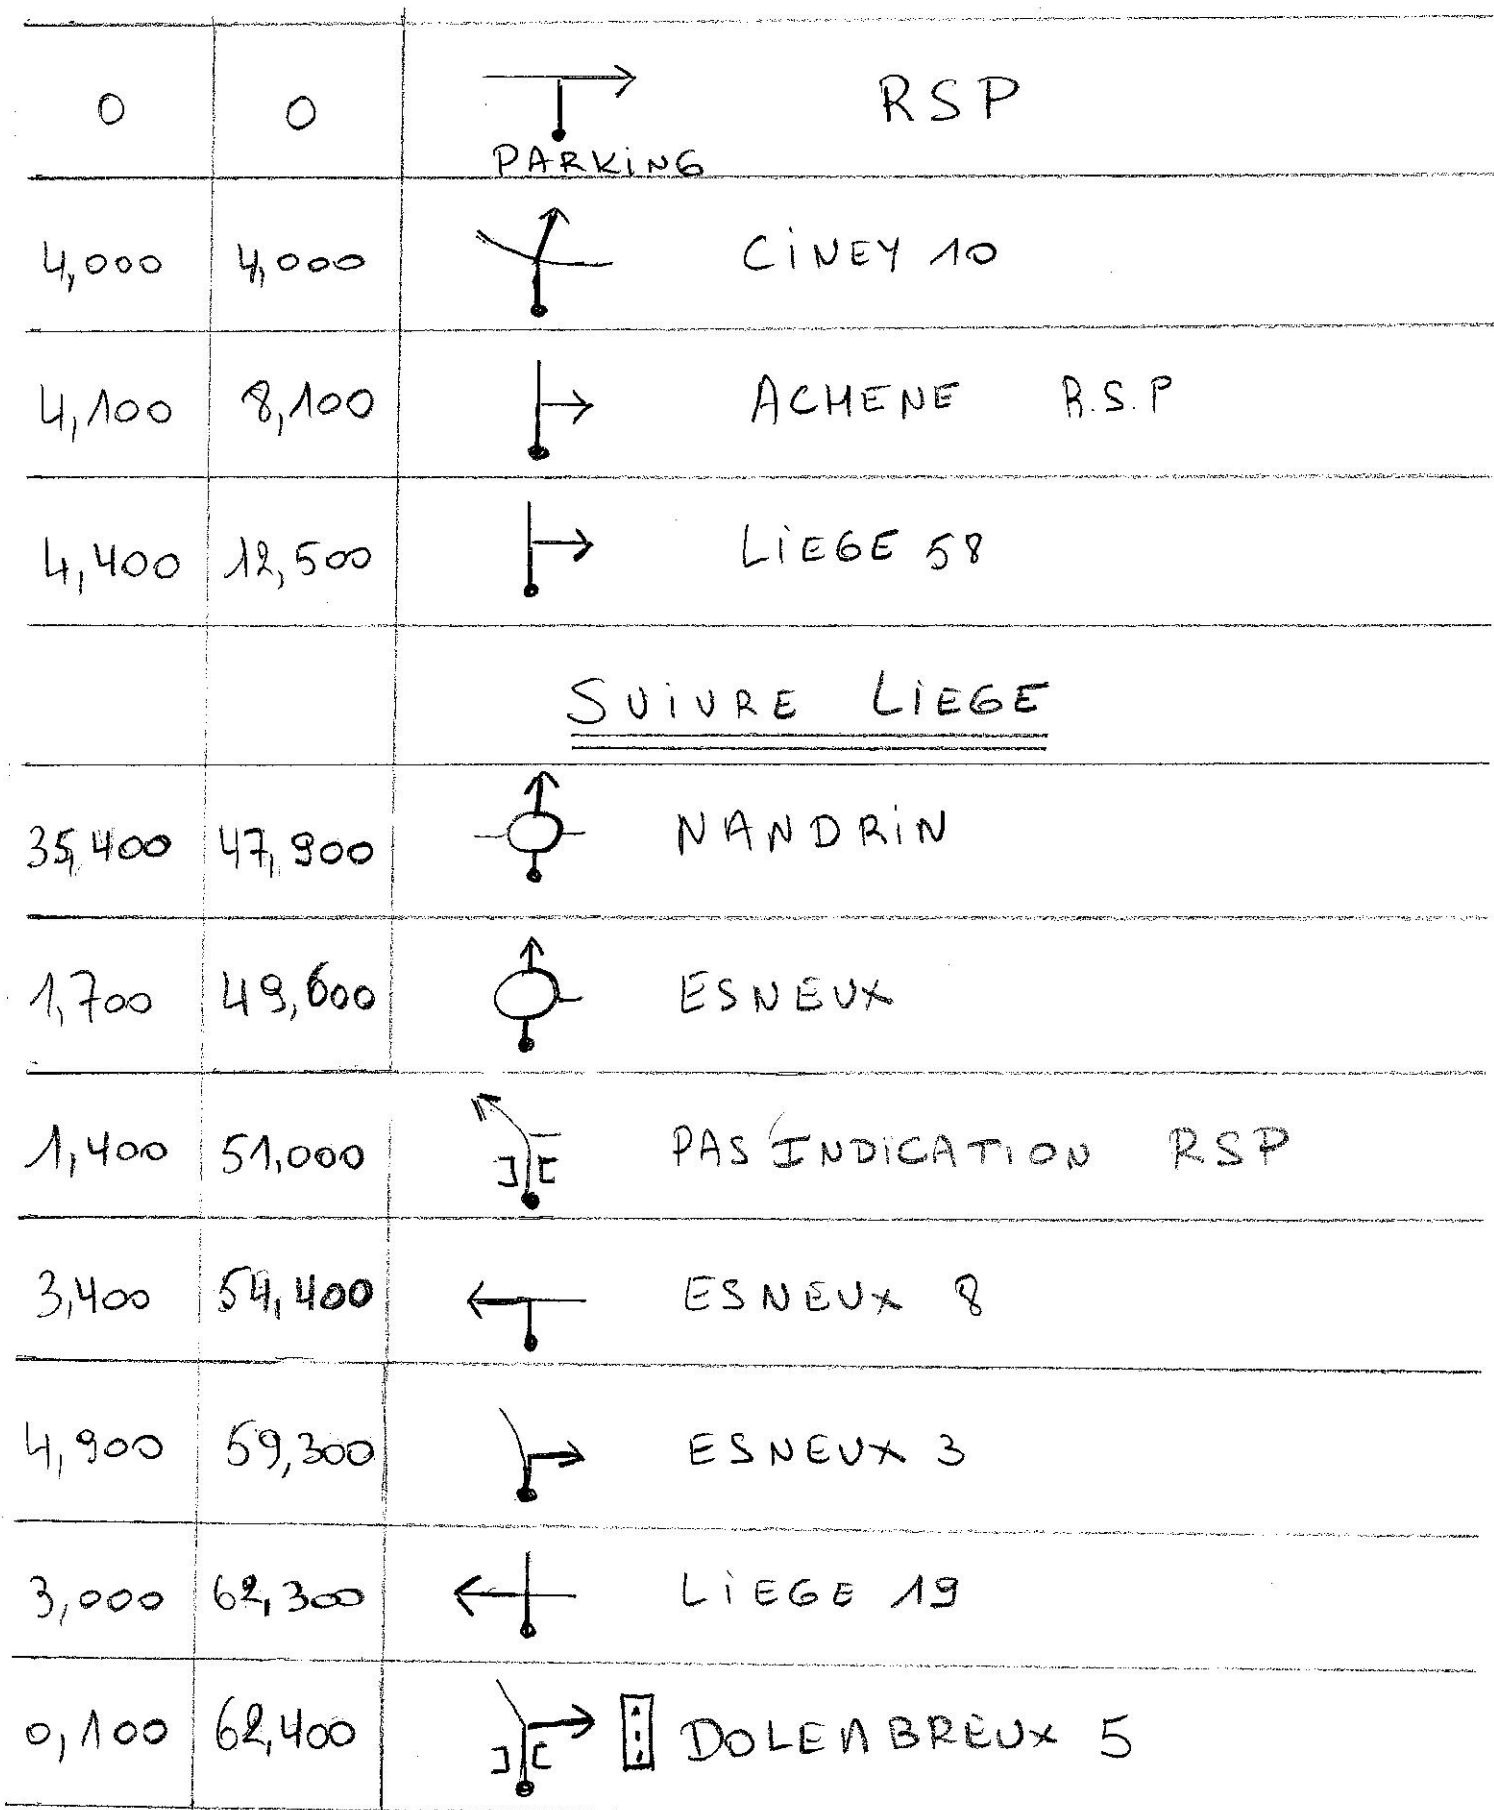 0 0 RSP
PARKING
4,000 4,000 CINEY 10
4,100 8,100 ACHENE R.S.P
4,400 12,500 LIEGE 58
SUIVRE LIEGE
35,400 47,900 NANDRIN
1,700 49,600 ESNEUX
1,400 51,000 PAS INDICATION RSP
3,400 54,400 ESNEUX 8
4,900 59,300 ESNEUX 3
3,000 62,300 LIEGE 19
0,100 62,400 DOLEMBREUX 5